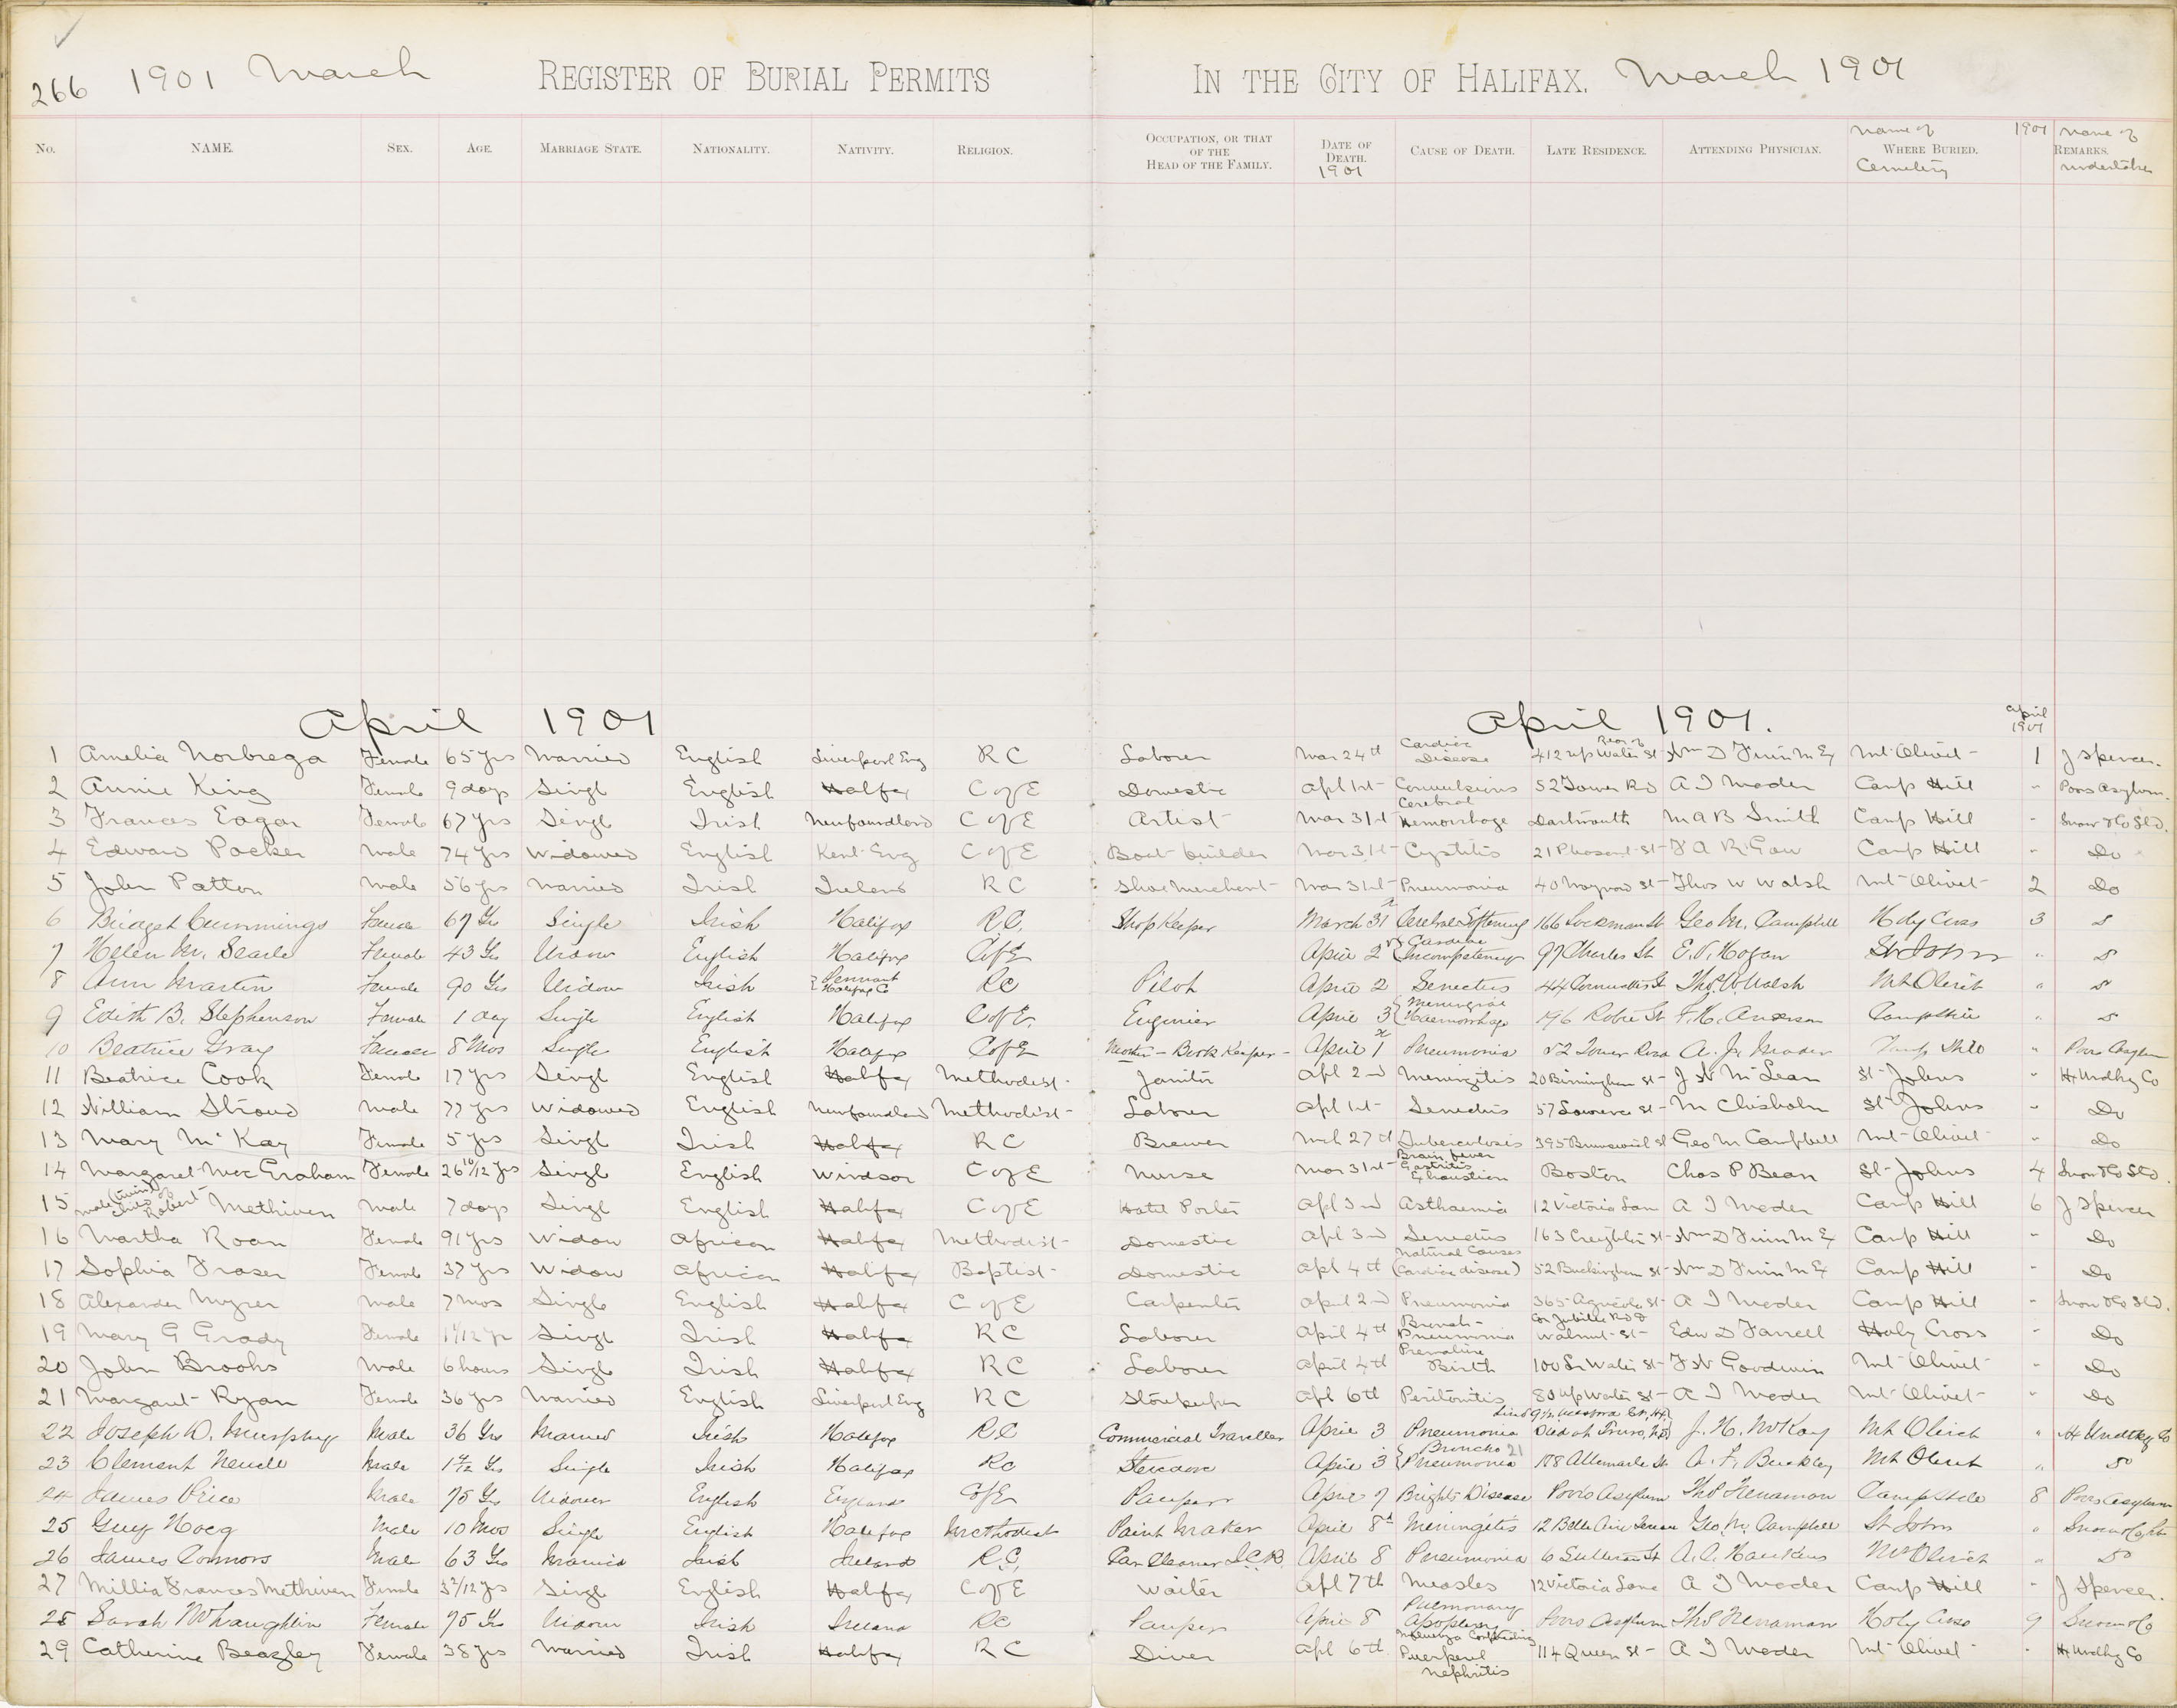 266 1901 March REGISTER OF BURIAL PERMITS IN THE CITY OF HALIFAX. March 1901
No. NAME. SEX. AGE. MARRIAGE STATE. NATIONALITY. NATIVITY. RELIGION. OCCUPATION, OR THAT OF THE HEAD OF THE FAMILY. DATE OF DEATH. 1901 CAUSE OF DEATH. LATE RESIDENCE. ATTENDING PHYSICIAN. Name of WHERE BURIED. Cemetery 1901 Name of REMARKS. undertaker
April 1901 April 1901. April 1901
1 Amelia Norbrega Female 65 yrs Married English Liverpool Eng R C Laborer Mar 24th Cardiac Disease 412 up Water St Rear of Wm D Finn M Ex Mt Olivet 1 J Spencer.
2 Annie King Female 9 days Singl English Halifax C of E Domestic Apl 1st Convulsions 52 Tower Rd A I Mader Camp Hill " Poors Asylum.
3 Frances Eagar Female 67 yrs Singl Irish Newfoundland C of E Artist Mar 31st Cerebral Hemorrhage Dartmouth M A B Smith Camp Hill " Snow & Co Ltd.
4 Edward Packer Male 74 yrs Widowed English Kent Eng C of E Boat builder Mar 31st Cystitis 21 Pleasant St F A R Gow Camp Hill " Do
5 John Patton Male 56 yrs Married Irish Ireland R C Shoe Merchant Mar 31st Pneumonia 40 Maynard St Thos W Walsh Mt Olivet 2 Do
6 Bridget Cummings Female 67 Yrs Single Irish Halifax R.C. Shop Keeper March 31 Cerebral Softening 166 Lockman St Geo M. Campbell Holy Cross 3 D
7 Helen M. Searle Female 43 Yrs Widow English Halifax C of E April 2 Cardiac Incompetency 97 Charles St E. V. Hogan St John " D
8 Ann Martin Female 90 Yrs Widow Irish Pennant Halifax Co RC Pilot April 2 Senectus 44 Cornwallis St Thos. W. Walsh Mt Olivet " D
9 Edith B. Stephenson Female 1 day Single English Halifax C of E. Enginier April 3 Meningeal Haemorrhage 196 Robie St F. H. Anderson Camp Hill " D
10 Beatrice Gray Female 8 Mos Single English Halifax C of E Mother - Book Keeper - April 1 Pneumonia 52 Tower Road A. J. Mader Camp Hill " Poors Asylum
11 Beatrice Cook Female 17 yrs Singl English Halifax Methodist Janitor Apl 2nd Meningitis 20 Birmingham St J W McLean St Johns " Hx Undtkg Co
12 William Stroud Male 77 yrs Widowed English Newfoundland Methodist Laborer Apl 1st Senectus 57 Lawrence St M Chisholm St Johns " Do
13 Mary McKay Female 5 yrs Singl Irish Halifax R C Brewer Mch 27th Tuberculosis 395 Brunswick St Geo M Campbell Mt Olivet " Do
14 Margaret Mc Graham Female 26 10/12 yrs Singl English Windsor C of E Nurse Mar 31st Brain fever Gastritis Exhaustion Boston Chas P Bean St Johns 4 Snow & Co Ltd.
15 Male (twin) child of Robert Methiven Male 7 days Singl English Halifax C of E Hotel Porter Apl 3rd Asthaemia 12 Victoria Lane A I Mader Camp Hill 6 J Spencer
16 Martha Roan Female 91 yrs Widow African Halifax Methodist Domestic Apl 3rd Senectus 163 Creighton St Wm D Finn M Ex Camp Hill " Do
17 Sophia Fraser Female 37 yrs Widow African Halifax Baptist Domestic Apl 4th Natural Causes (Cardiac disease) 52 Buckingham St Wm D Finn M Ex Camp Hill " Do
18 Alexander Myrer Male 7 mos Single English Halifax C of E Carpenter April 2nd Pneumonia 365 Agricola St A I Mader Camp Hill " Snow & Co Ltd.
19 Mary G Grady Female Singl Irish Halifax R C Laborer April 4th Bronch- Pneumonia Cor Jubilee Rd & Walnut St Edw D Farrell Holy Cross " Do
20 John Brooks Male 6 hours Singl Irish Halifax R C Laborer April 4th Premature Birth 100 Lr Water St F W Goodwin Mt Olivet " Do
21 Margaret Ryan Female 36 yrs Married English Liverpool Eng R C Storekeeper Apl 6th Peritonitis 80 up Water St A I Mader Mt Olivet " Do
22 Joseph D. Murphy Male 36 Yrs Married Irish Halifax R.C Commercial Traveller April 3 Pneumonia Died at Truro, N.S J. H. McKay Mt Olivet " Hx Undtkg Co
23 Clement Neville Male Single Irish Halifax RC Stevedore April 3 Broncho Pneumonia 21 178 Albemarle St A. F. Buckley Mt Olivet " Do
24 James Price Male 75 Yrs Widower English England C of E Pauper April 7 Brights Disease Poors Asylum Thos Trenaman Camp Hill 8 Poors Asylum
25 Guy Hoeg Male 10 Mos Single English Halifax Methodist Paint Maker April 8th Meningitis 12 Belle Aire Terrace Geo. M. Campbell St John " Snow & Co Ltd
26 James Connors Male 63 Yrs Married Irish Ireland R.C. Car Cleaner I.C.R. April 8 Pneumonia 6 Sullivan St A. C. Hawkins Mt Olivet " Do
27 Millia Frances Methiven Female Singl English Halifax C of E Waiter Apl 7th Measles 12 Victoria Lane A I Mader Camp Hill " J Spencer.
28 Sarah McLaughlin Female 75 Yrs Widow Irish Ireland RC Pauper April 8 Pulmonary Apoplexy Poors Asylum Thos Trenaman Holy Cross 9 Snow & Co
29 Catherine Beazley Female 38 yrs Married Irish Halifax R C Diver Apl 6th Puerperal Nephritis 114 Queen St A I Mader Mt Olivet " Hx Undtkg Co